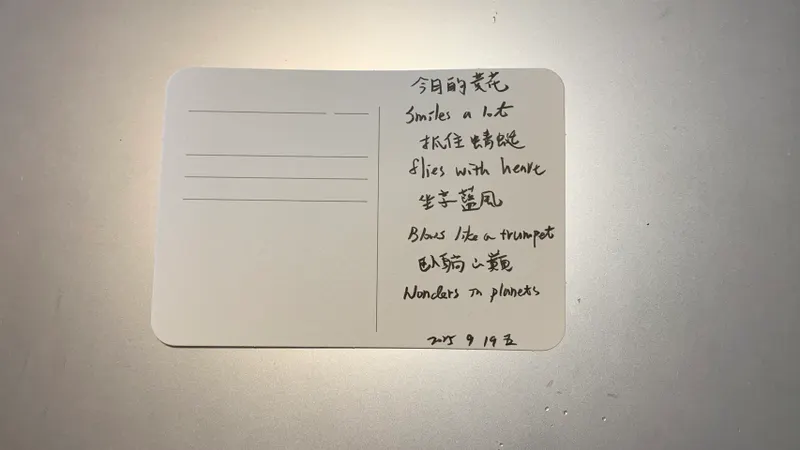 今日的黄花
Smiles a lot
抓住蜻蜓
flies with heart
坐享藍風
Blows like a trumpet
臥躺山巔
Wonders in planets
2025 9 19 五